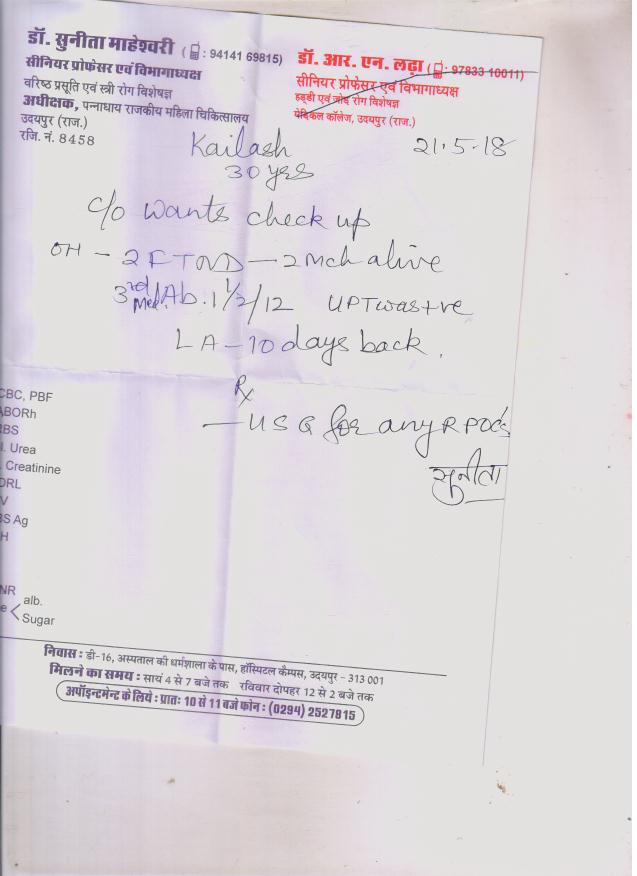 डॉ. सुनीता माहेश्वरी ( : 94141 69815)
सीनियर प्रोफेसर एवं विभागाध्यक्ष
वरिष्ठ प्रसूति एवं स्त्री रोग विशेषज्ञ
अधीक्षक, पन्नाधाय राजकीय महिला चिकित्सालय
उदयपुर (राज.)
रजि. नं. 8458
डॉ. आर. एन. लढ़ा ( : 97833 10011)
सीनियर प्रोफेसर एवं विभागाध्यक्ष
हड्डी एवं जोड़ रोग विशेषज्ञ
मेडिकल कॉलेज, उदयपुर (राज.)
Kailash 21.5.18
30 yrs
c/o wants check up
OH - 2 FTND - 2 Mch alive
3rd Med. Ab. 1 1/2/12 UPT was +ve
LA - 10 days back.
Rx
- USG for any RPOC's
सुनीता
CBC, PBF
ABORh
BS
. Urea
. Creatinine
DRL
V
BS Ag
H
NR
e < alb.
Sugar
निवास : डी-16, अस्पताल की धर्मशाला के पास, हॉस्पिटल कैम्पस, उदयपुर - 313 001
मिलने का समय : सायं 4 से 7 बजे तक रविवार दोपहर 12 से 2 बजे तक
अपॉइन्टमेन्ट के लिये : प्रातः 10 से 11 बजे फोन : (0294) 2527815